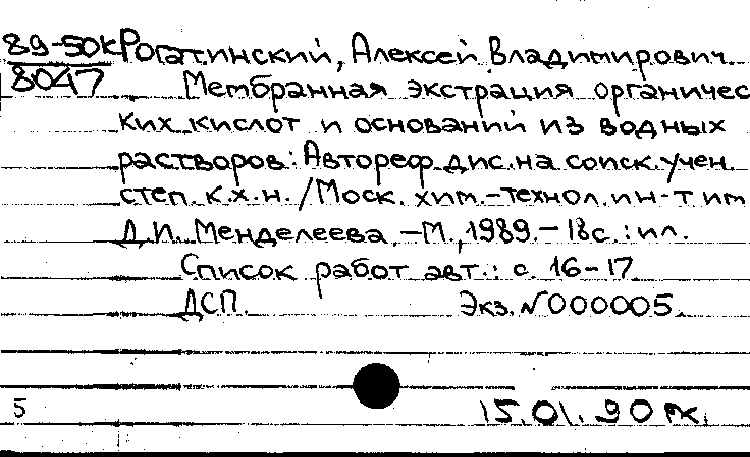 89-50к Рогатинский, Алексей Владимирович.
8047 Мембранная экстрация органичес
ких кислот и оснований из водных
растворов: Автореф. дис. на соиск. учен.
степ. к.х.н. / Моск. хим.-технол. ин-т им
Д.И. Менделеева. – М., 1989. – 18с. : ил.
Список работ авт.: с. 16-17
ДСП. Экз. N000005.
5 15.01.90